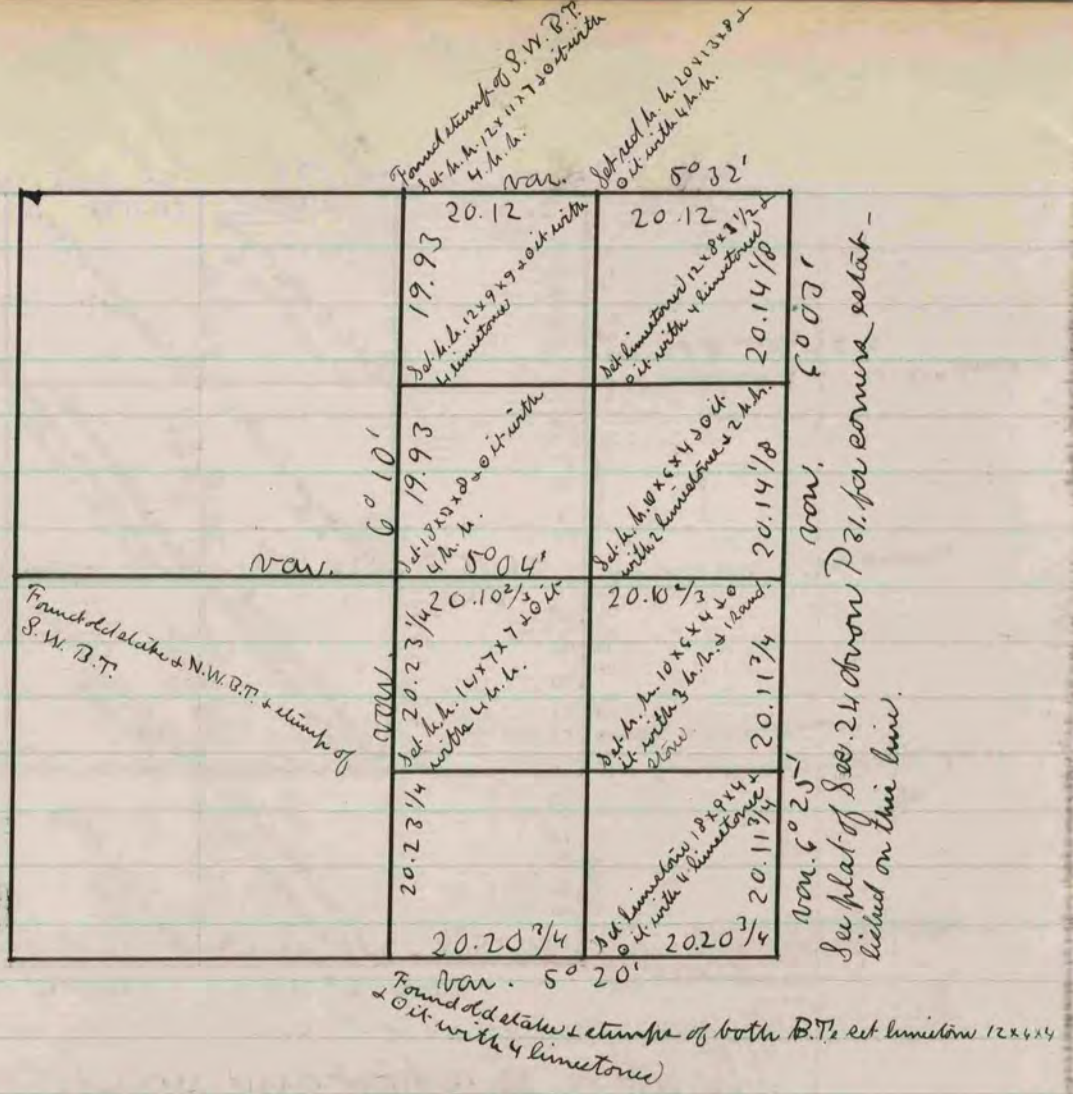 Found stump of S.W. B.T.
Set h.h. 12x11x7 & ʘ it with
4 h.h.
Set red h.h. 20x13x8 &
ʘ it with 4 h.h.
var. 5° 32'
20.12
20.12
19.93
Set h.h. 12x9x9 & ʘ it with
4 limestones
Set limestones 12x8x3 1/2 &
ʘ it with 4 limestones
20.14 1/8
var. 6° 03'
19.93
Set 18x12x8 & ʘ it with
4 h.h.
Set h.h. 10x6x4 & ʘ it
with 2 limestones & 2 h.h.
20.14 1/8
var. 6° 10'
var. 5° 04'
Found old stake & N.W. B.T. & stump of
S.W. B.T.
20.10 2/3
20.10 2/3
20.23 1/4
Set h.h. 14x7x7 & ʘ it
with 4 h.h.
Set h.h. 10x6x4 & ʘ
it with 3 h.h. & 1 sand
stone
20.11 3/4
20.23 1/4
Set limestone 18x9x4 &
ʘ it with 4 limestones
20.11 3/4
var. 6° 25'
20.20 3/4
20.20 3/4
var. 5° 20'
Found old stake & stumps of both B.Ts set limestone 12x4x4
& ʘ it with 4 limestones
See plat of Sec. 24 down P 31. for corners estab-
lished on this line.